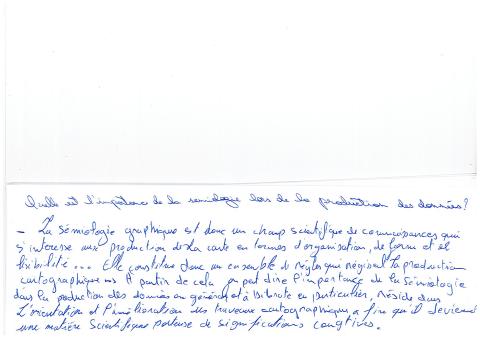 Quelle et l'importance de la semiologie lors de la production des données?
– La sémiologie graphique est donc un champ scientifique de connaissances qui
s'interesse aux production de la carte en termes d'organisation, de forme et
lisibilité... Elle constitue donc un ensemble de règles qui régissent la production
cartographique. A partir de cela on peut dire l'importance de la sémiologie
dans la production des données en général et à en particulier, réside dans
L'orientation et l'amélioration des travaux cartographiques a fin qu'il devienne
une matière scientifique porteuse de significations cognitives.